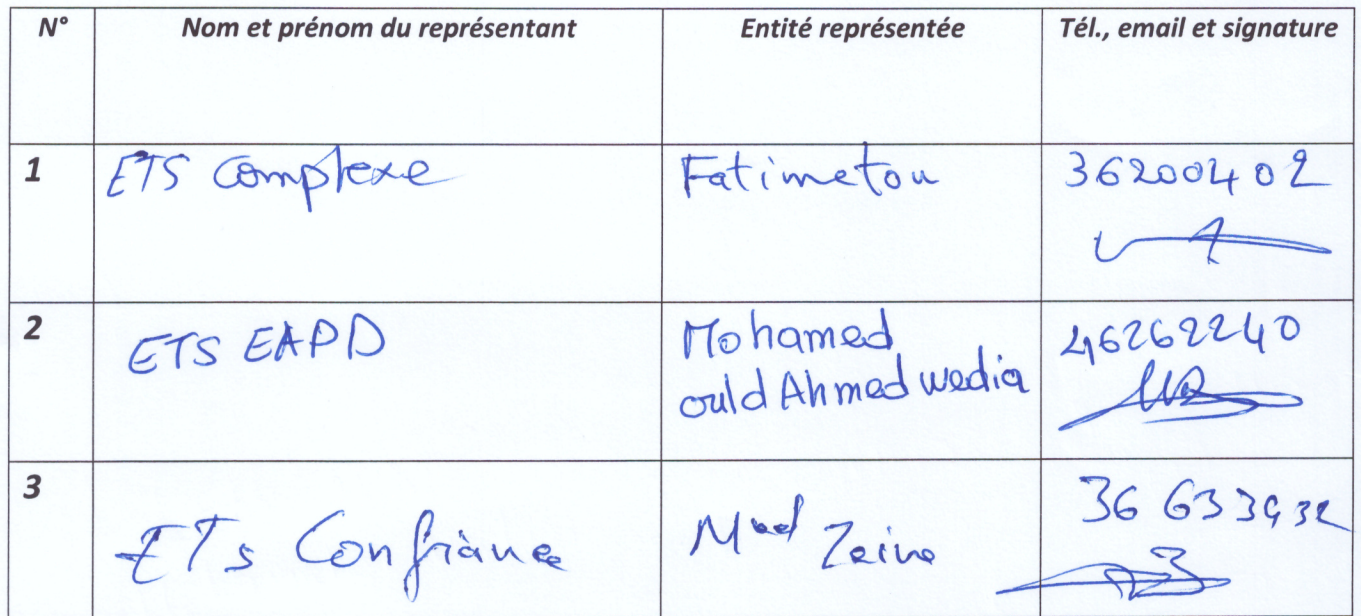 N° Nom et prénom du représentant Entité représentée Tél., email et signature
1 ETS Complexe Fatimetou 36200402
2 ETS EAPD Mohamed 46262240
ould Ahmed wedia
3 ETs Confiance Med Zeine 36 633932